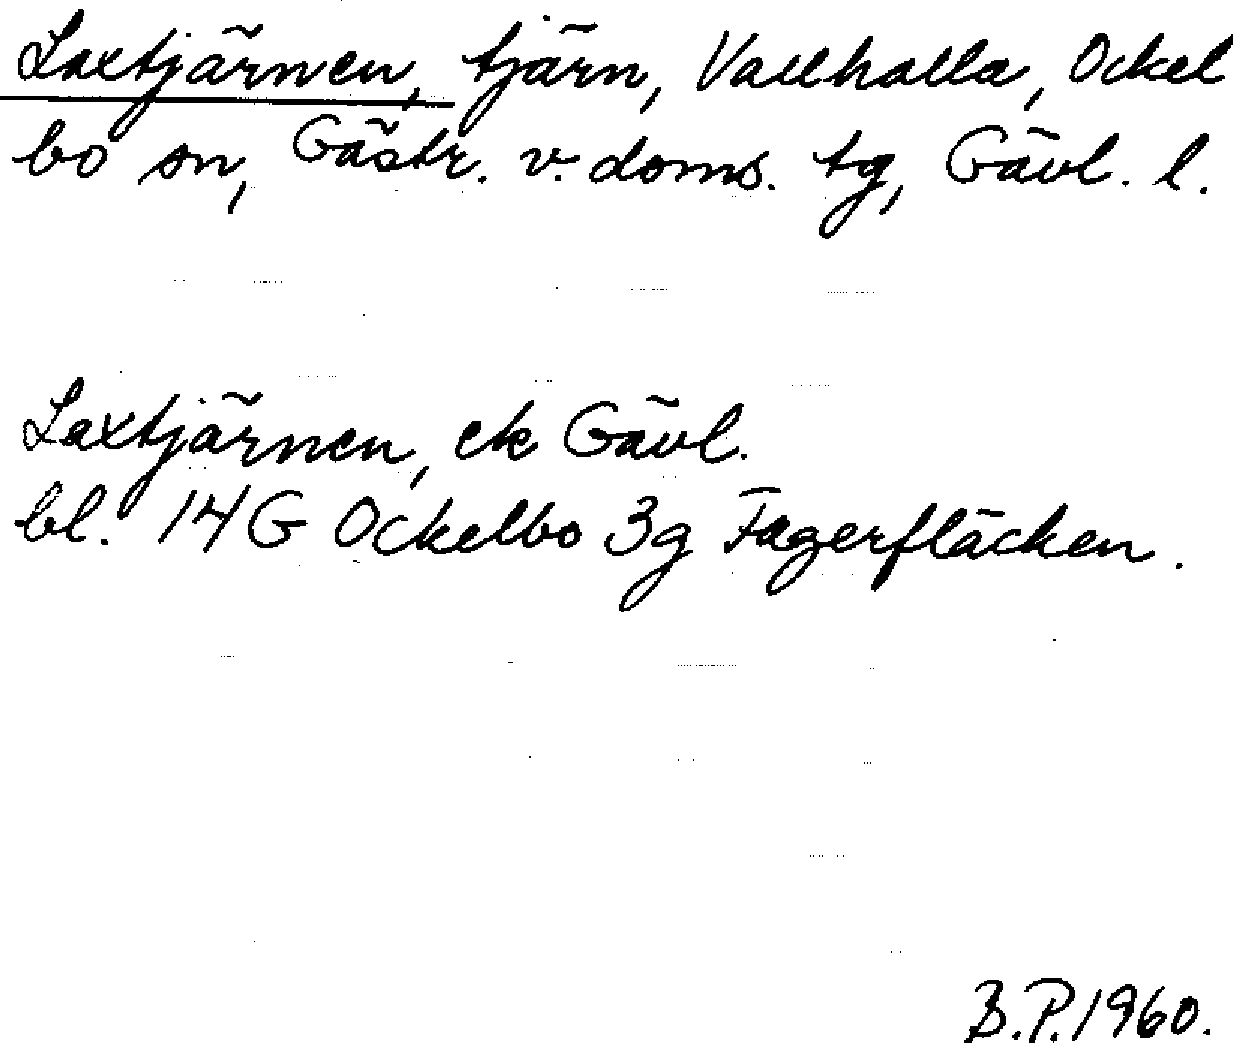 Laxtjärnen, tjärn, Vallhalla, Ockel
bo sn, Gästr. v. doms. tg, Gävl. l.
Laxtjärnen, ek Gävl.
bl. 14G Ockelbo 3g Fagerfläcken.
B.P. 1960.